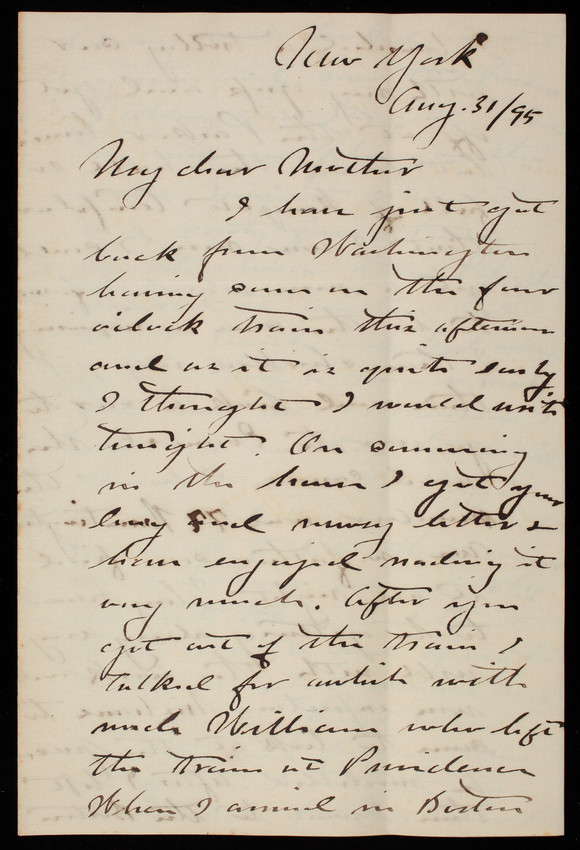 New York
Aug. 31/95
My dear Mother
I have just got
back from Washington
having come on the four
o'clock train this afternoon
and as it is quite early
I thought I would write
tonight. On comming
in the house I got your
long and newsy letter &
have enjoyed reading it
very much. After you
got out of the train I
talked for awhile with
uncle William who left
the train at Providence
When I arrived in Boston